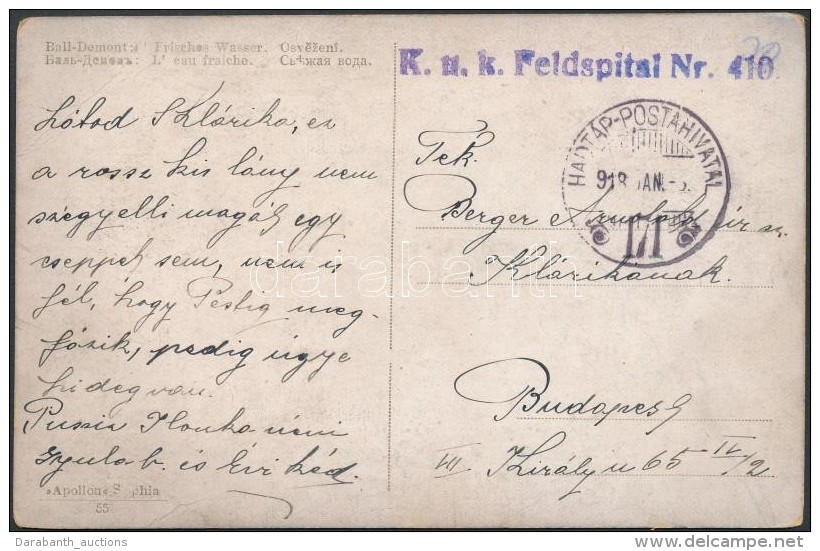 Ball-Demont: Frisches Wasser. Osvěžení.
L' eau fraîche. Свѣжая вода.
K. u. k. Feldspital Nr. 410
HADTÁP-POSTAHIVATAL
918 JAN.
III
látod Klárika, ez
a rossz kis lány nem
szégyelli magát egy
cseppet sem, nem is
fél, hogy Pestig meg-
fázik, pedig ugye
hideg van.
Puszi Ilonka néni
Gyula b. és Évikéd.
Tek.
Berger Arnold úr
Klárikának.
Budapest
VII Király u 65 IV/2
»Apollon« Sophia
55
darabanth
Darabanth_auctions
www.delcampe.net